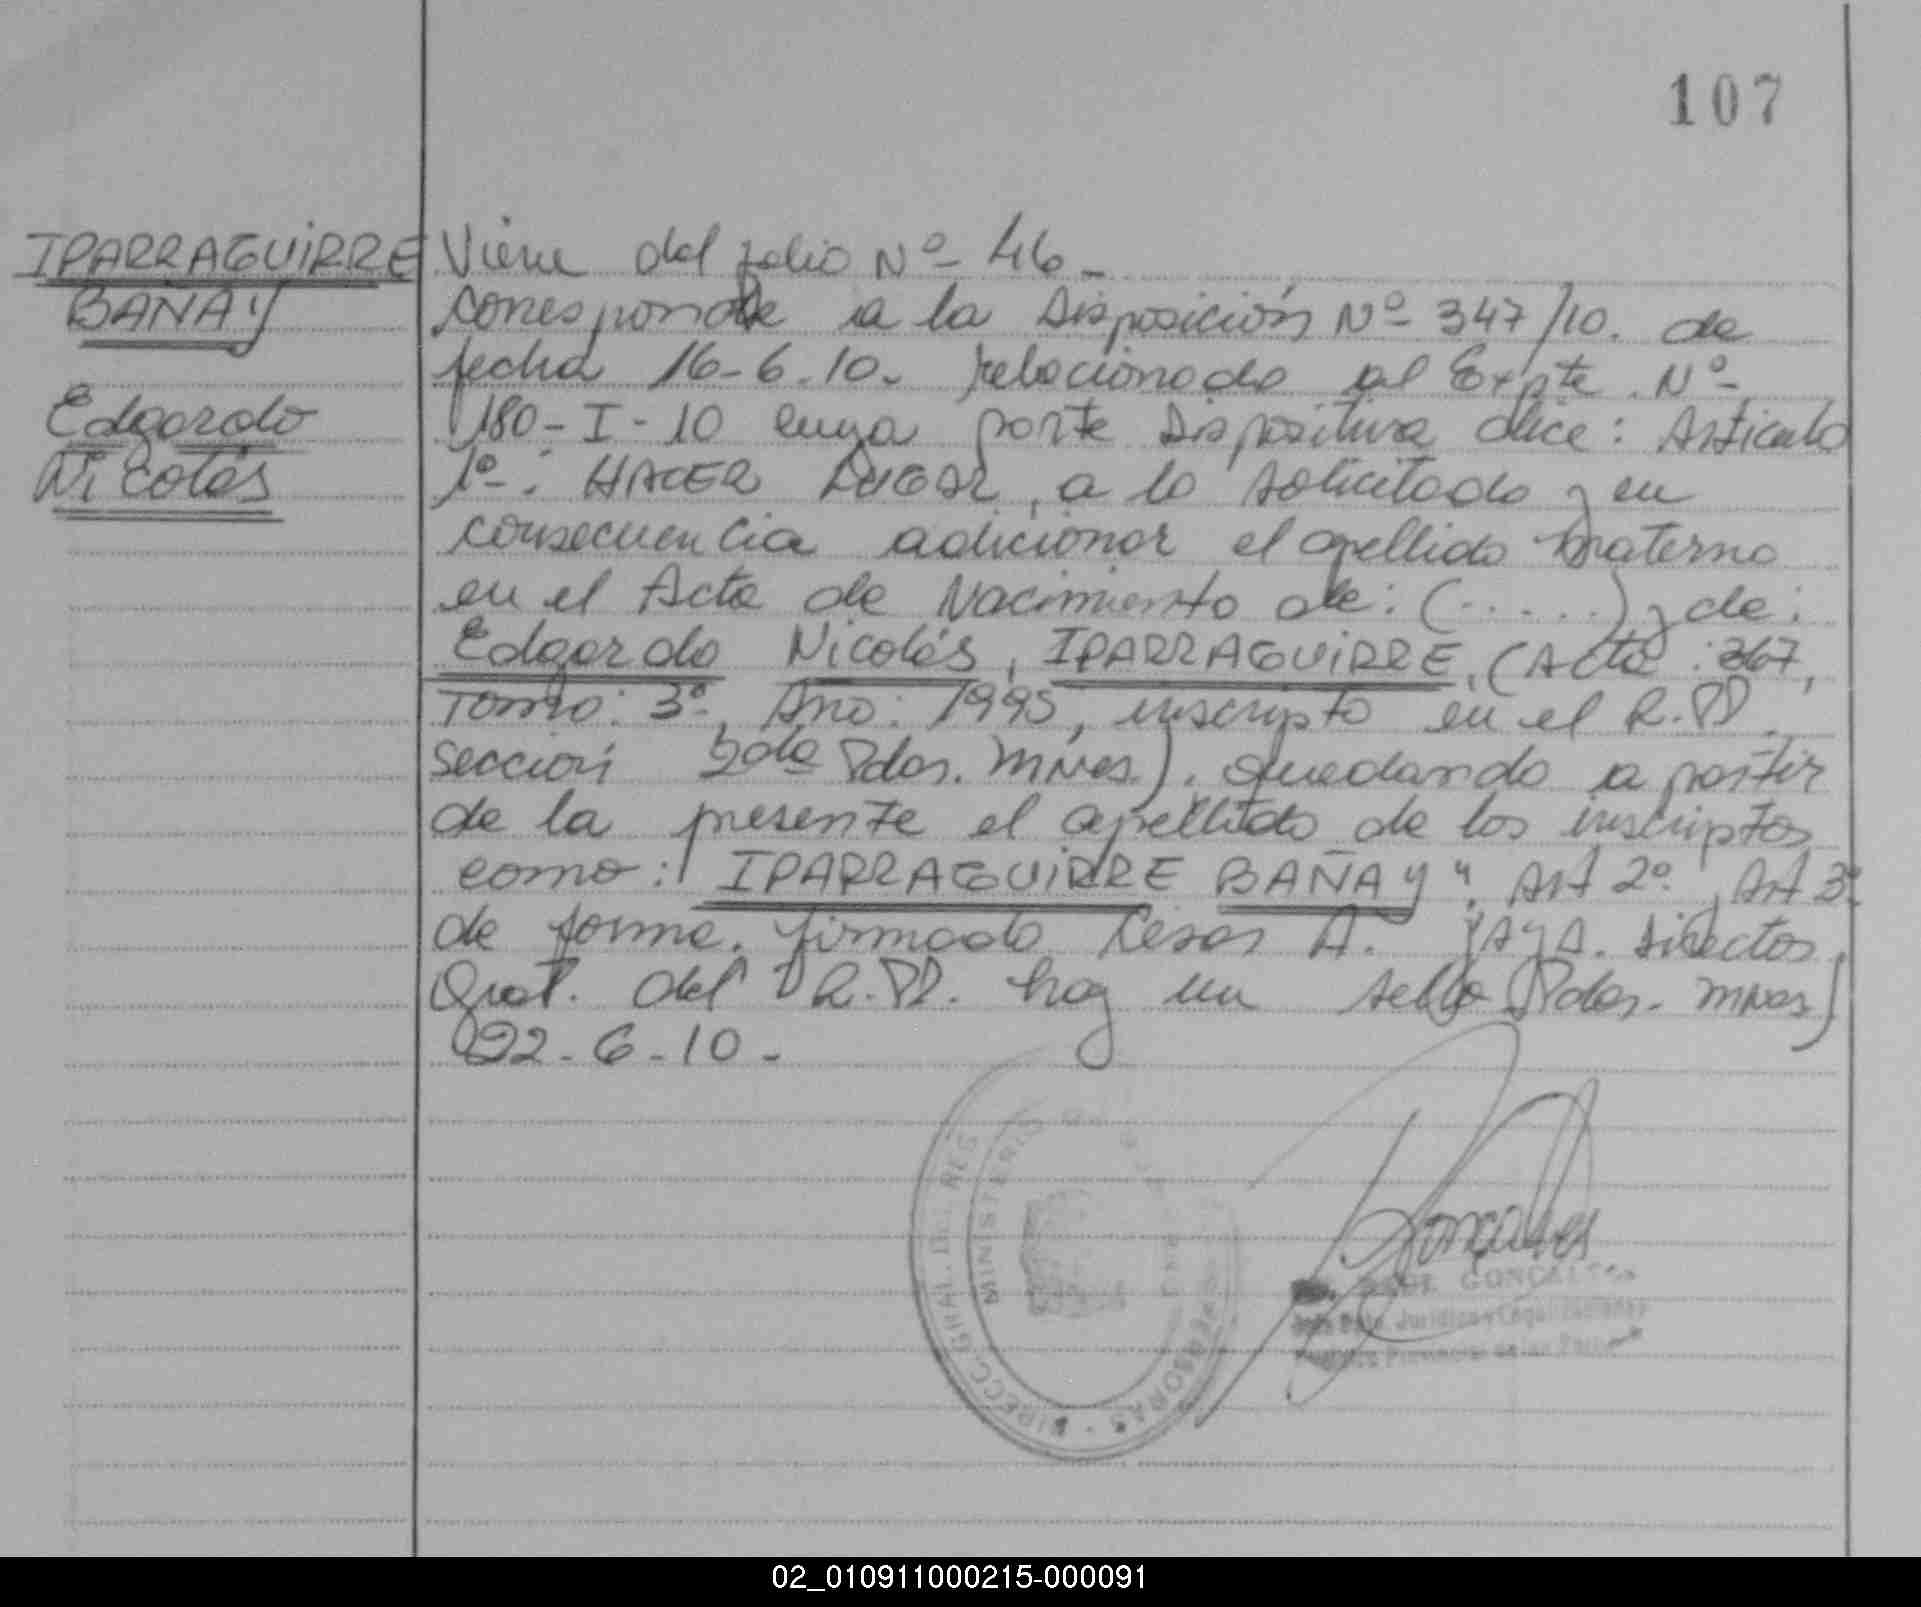 107
IPARRAGUIRRE
BAÑAY
Edgardo
Nicolás
Viene del folio Nº 46-
corresponde a la Disposición Nº 347/10. de
fecha 16-6-10. relacionado al Expte. Nº
180-I-10 cuya parte Dispositiva dice: Articulo
1º-: HACER LUGAR, a lo solicitado y en
consecuencia adicionar el apellido materno
en el Acta de Nacimiento de: (.....) y de:
Edgardo Nicolás, IPARRAGUIRRE, (Acta: 367,
Tomo: 3º, Año: 1995, inscripto en el R.PP.
sección 2da Pdas. Mnes.). quedando a partir
de la presente el apellido de los inscriptos
como: IPARRAGUIRRE BAÑAY". Art 2º, Art 3º
de forma. firmado Cesar A. Director
Gral. del R.PP. hay un sello Pdas. Mnes
22-6-10-
DIRECC. GRAL. DEL
MINISTERIO
GONCALVES